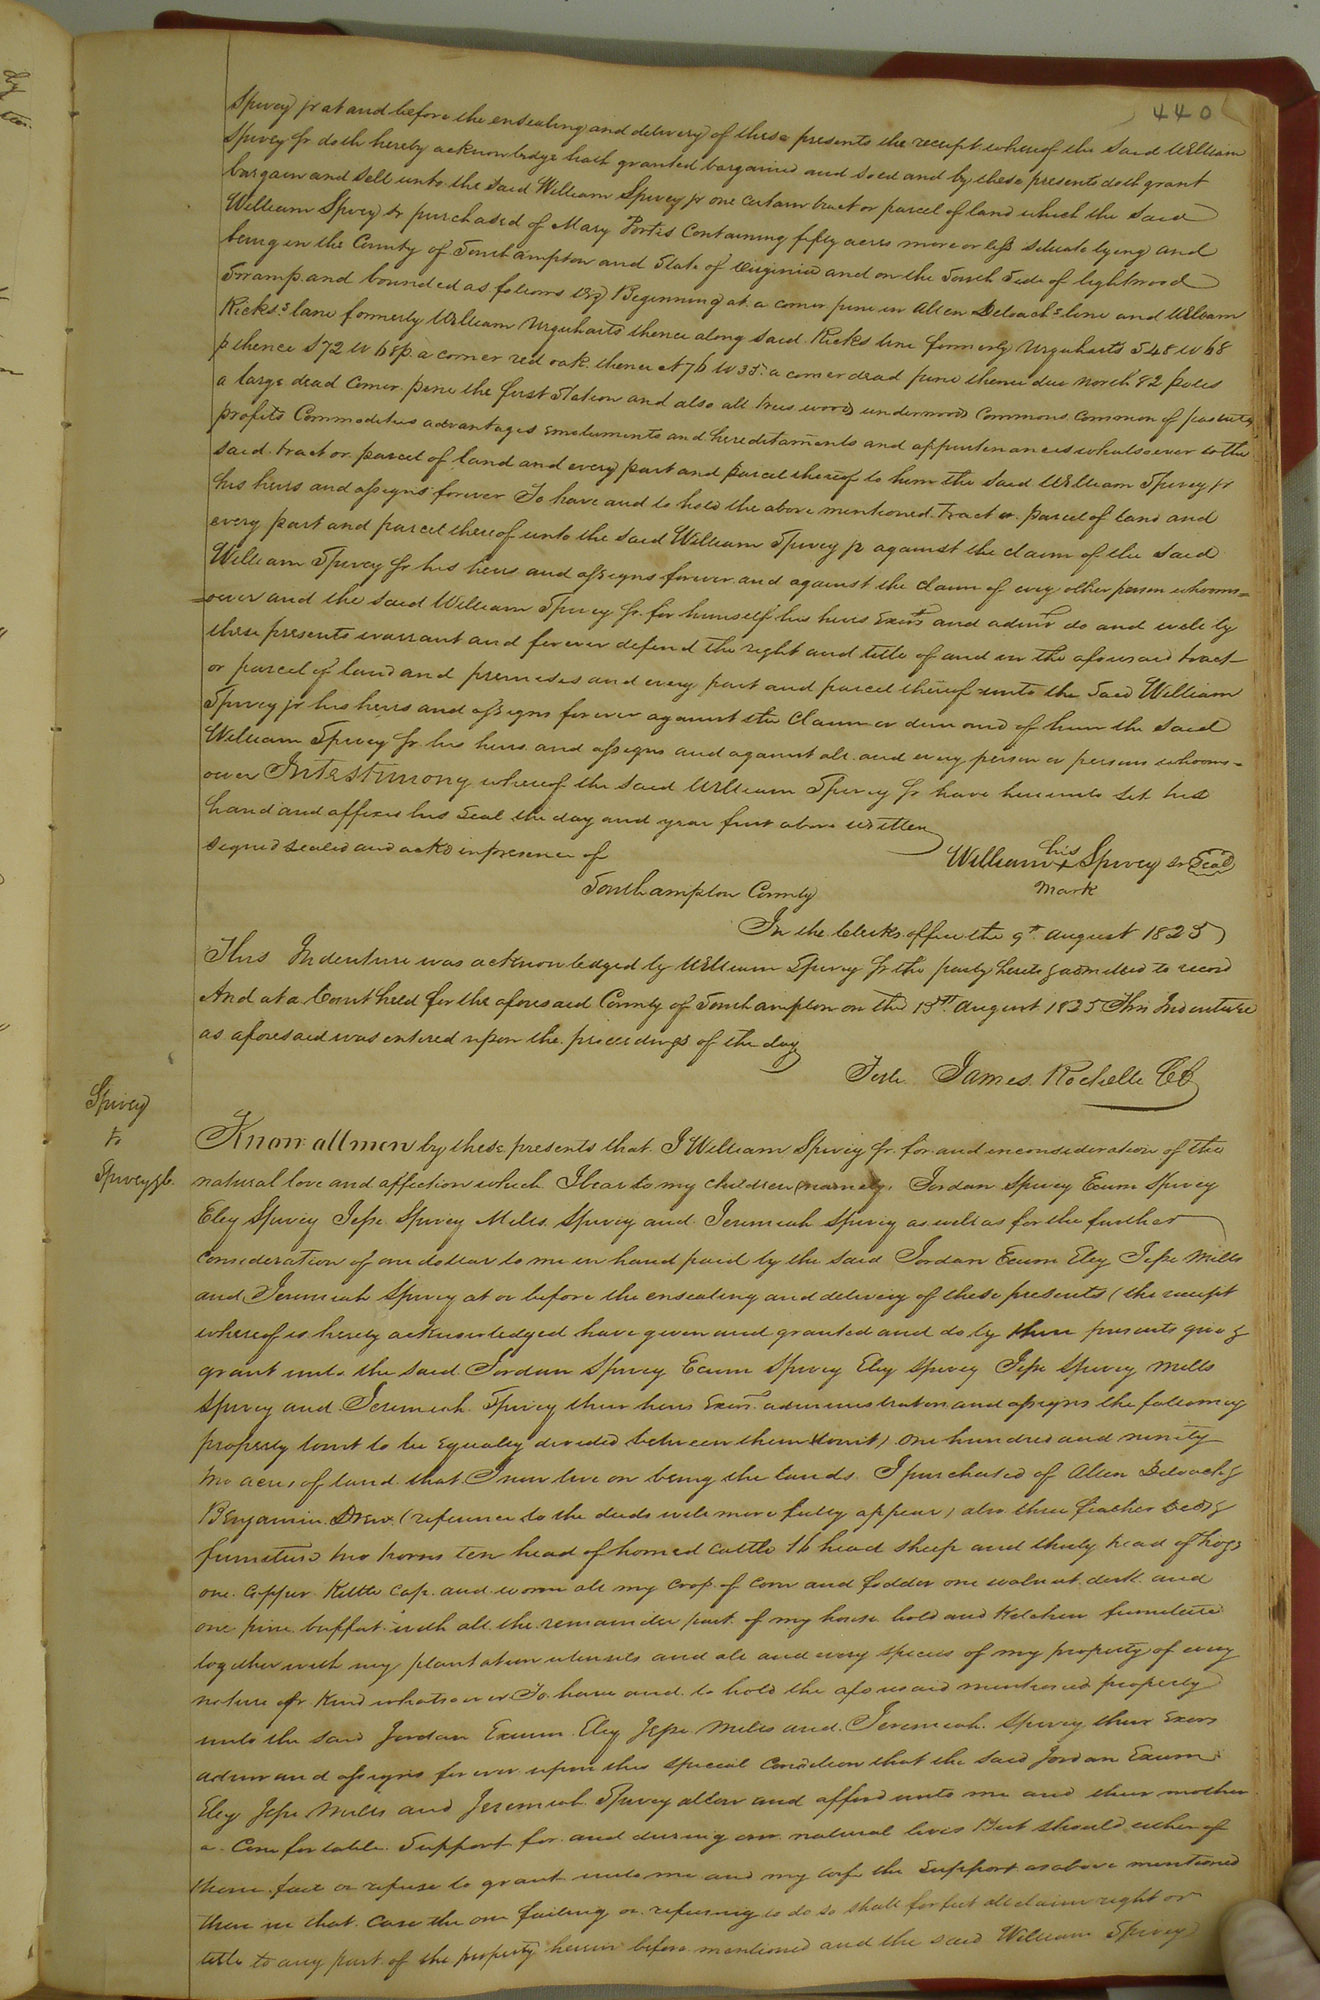 440
Spivey jr at and before the ensealing and delivery of these presents the receipt whereof the said William
Spivey Sr doth hereby acknowledge hath granted bargained and sold and by these presents doth grant
bargain and sell unto the said William Spivey jr one certain tract or parcel of land which the said
William Spivey Sr purchased of Mary Portis Containing fifty acres more or less situate lying and
being in the County of Southampton and State of Virginia and on the South Side of lightwood
Swamp and bounded as follows Viz Beginning at a corner pine in Allen Deloach's line and William
Ricks's lane formerly William Urquharts thence along said Ricks line formerly Urquharts S48 W 68
p thence S72 W 68p a corner red oak thence N76 W 35 a corner dead pine thence due north 82 poles
a large dead Corner pine the first Station and also all trees woods underwoods Commons Common of pasture
profits Commodities advantages emoluments and hereditaments and appurtenances whatsoever to the
said tract or parcel of land and every part and parcel thereof to him the said William Spivey jr
his heirs and assigns forever To have and to hold the above mentioned tract or parcel of land and
every part and parcel thereof unto the said William Spivey jr against the claim of the said
William Spivey Sr his heirs and assigns forever and against the claim of every other person whoms=
=oever and the said William Spivey Sr for himself his heirs Exors and admrs do and will by
these presents warrant and forever defend the right and title of and in the aforesaid tract
or parcel of land and premises and every part and parcel thereof unto the said William
Spivey jr his heirs and assigns forever against the Claim or demand of him the said
William Spivey Sr his heirs and assigns and against all and every person or persons whoms=
oever In testimony whereof the said William Spivey Sr have hereunto set his
hand and affixed his seal the day and year first above written
signed sealed and ackd in presence of
his
William + Spivey Sr Seal
mark
Southampton County
In the Clerks office the 9th august 1825
This Indenture was acknowledged by William Spivey Sr the party hereto & admitted to record
And at a Court held for the aforesaid County of Southampton on the 15th august 1825 This Indenture
as aforesaid was entered upon the proceedings of the day
Teste James Rochelle CC
Spivey
to
Spivey &c.
Know all men by these presents that I William Spivey Sr for and in consideration of the
natural love and affection which I bear to my children (namely, Jordan Spivey Exum Spivey
Eley Spivey Jesse Spivey Mills Spivey and Jeremiah Spivey as well as for the further
consideration of one dollar to me in hand paid by the said Jordan Exum Eley Jesse Mills
and Jeremiah Spivey at or before the ensealing and delivery of these presents (the receipt
whereof is hereby acknowledged have given and granted and do by these presents give &
grant unto the said Jordan Spivey Exum Spivey Eley Spivey Jesse Spivey Mills
Spivey and Jeremiah Spivey their heirs Exors administrators and assigns the following
property towit to be Equaley divided between them (towit) One hundred and ninety
two acres of land that I now live on being the lands I purchased of Allen Deloach &
Benjamin Drew (reference to the deeds will more fully appear) also three feather beds &
furniture two horses ten head of horned cattle 16 head sheep and thirty head of hogs
one copper Kettle cap and worm all my crop of corn and fodder one walnut desk and
one pine buffat with all the remainder part of my house hold and Kitchen furniture
together with my plantation utensils and all and every species of my property of every
nature or Kind whatsoever To have and to hold the aforesaid mentioned property
unto the said Jordan Exum Eley Jesse Mills and Jeremiah Spivey their Exors
admrs and assigns for ever upon this special condition that the said Jordan Exum
Eley Jesse Mills and Jeremiah Spivey allow and afford unto me and their mother
a Comfortable Support for and during our natural lives But should either of
them fail or refuse to grant unto me and my wife the Support as above mentioned
then in that case the one failing or refusing to do so shall forfeit all claim right or
title to any part of the property herein before mentioned and the said William Spivey